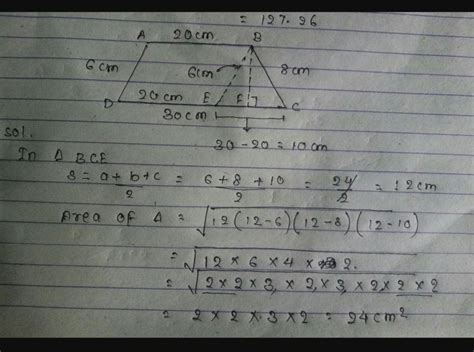 = 127.96
A 20cm B
6cm 6cm 8cm
D 20cm E F C
30cm
30 - 20 = 10 cm
Sol.
In Δ BCE
s = a + b + c / 2 = 6 + 8 + 10 / 2 = 24 / 2 = 12cm
Area of Δ = √12 (12-6) (12-8) (12-10)
= √12 × 6 × 4 × 2.
= √2 × 2 × 3, × 2, × 3, × 2 × 2 × 2
= 2 × 2 × 3 × 2 = 24 cm²